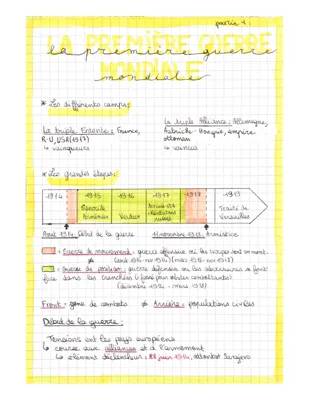 partie 1:
LA PREMIÈRE GUERRE
la première guerre
MONDIALE
mondiale
* Les différents camps:
La triple Entente: France,
R-U, USA (1917)
↳ vainqueurs
La triple Alliance: Allemagne,
Autriche-Hongrie, empire
ottoman
↳ vaincus
* Les grandes étapes:
1914 1915 1916 1917 1917 1919
Génocide
Arméniens
Verdun
Traité de
Versailles
Août 1914: Début de la guerre
11 novembre 1918: Armistice
= Guerre de mouvement = guerre offensive où les troupes sont en mouv.
≠
= Guerre de position = guerre défensive où les adversaires se font
face dans les tranchées
(décembre 1914 - mars 1918)
Front = zone de combats ≠ Arrière = populations civiles
Début de la guerre:
Tensions ent les pays européens
↳ course aux alliances et à l'armement
↳ élément déclencheur: 28 juin 1914, attentat Sarajevo